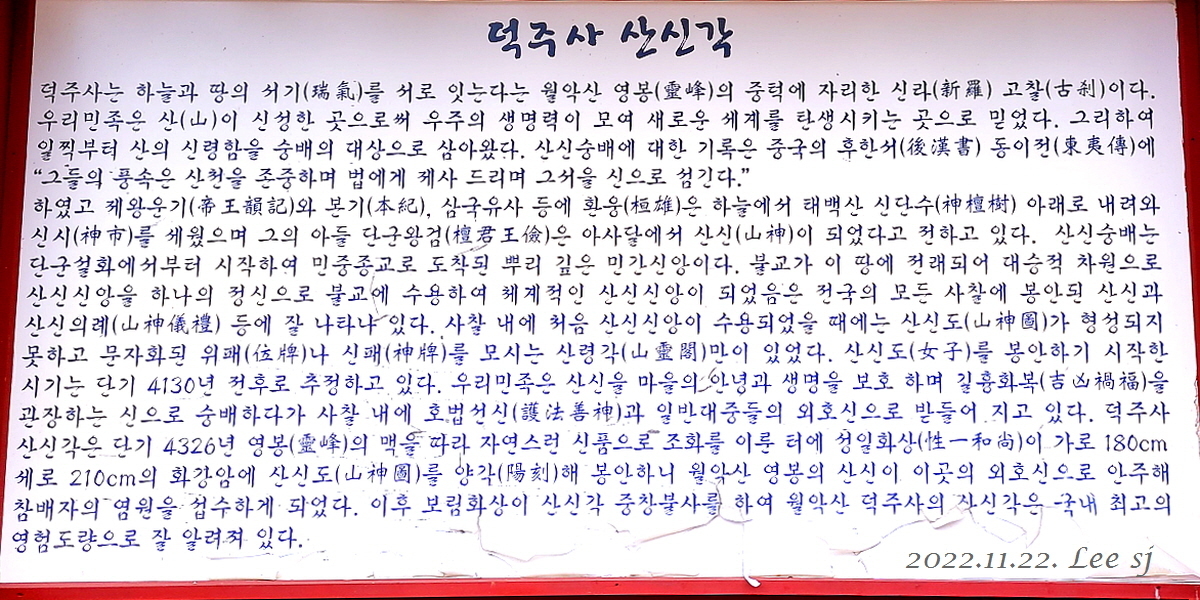 덕주사 산신각
덕주사는 하늘과 땅의 서기(瑞氣)를 서로 잇는다는 월악산 영봉(靈峰)의 중턱에 자리한 신라(新羅) 고찰(古刹)이다.
우리민족은 산(山)이 신성한 곳으로써 우주의 생명력이 모여 새로운 세계를 탄생시키는 곳으로 믿었다. 그리하여
일찍부터 산의 신령함을 숭배의 대상으로 삼아왔다. 산신숭배에 대한 기록은 중국의 후한서(後漢書) 동이전(東夷傳)에
“그들의 풍속은 산천을 존중하며 범에게 제사 드리며 그서을 신으로 섬긴다.”
하였고 제왕운기(帝王韻記)와 본기(本紀), 삼국유사 등에 환웅(桓雄)은 하늘에서 태백산 신단수(神檀樹) 아래로 내려와
신시(神市)를 세웠으며 그의 아들 단군왕검(檀君王儉)은 아사달에서 산신(山神)이 되었다고 전하고 있다. 산신숭배는
단군설화에서부터 시작하여 민중종교로 도착된 뿌리 깊은 민간신앙이다. 불교가 이 땅에 전래되어 대승적 차원으로
산신신앙을 하나의 정신으로 불교에 수용하여 체계적인 산신신앙이 되었음은 전국의 모든 사찰에 봉안된 산신과
산신의례(山神儀禮) 등에 잘 나타나 있다. 사찰 내에 처음 산신신앙이 수용되었을 때에는 산신도(山神圖)가 형성되지
못하고 문자화된 위패(位牌)나 신패(神牌)를 모시는 산령각(山靈閣)만이 있었다. 산신도(女子)를 봉안하기 시작한
시기는 단기 4130년 전후로 추정하고 있다. 우리민족은 산신을 마을의 안녕과 생명을 보호 하며 길흉화복(吉凶禍福)을
관장하는 신으로 숭배하다가 사찰 내에 호법선신(護法善神)과 일반대중들의 외호신으로 받들어 지고 있다. 덕주사
산신각은 단기 4326년 영봉(靈峰)의 맥을 따라 자연스런 신품으로 조화를 이룬 터에 성일화상(性一和尚)이 가로 180cm
세로 210cm의 화강암에 산신도(山神圖)를 양각(陽刻)해 봉안하니 월악산 영봉의 산신이 이곳의 외호신으로 안주해
참배자의 염원을 섭수하게 되었다. 이후 보림화상이 산신각 중창불사를 하여 월악산 덕주사의 산신각은 국내 최고의
영험도량으로 잘 알려져 있다.
2022.11.22. Lee sj